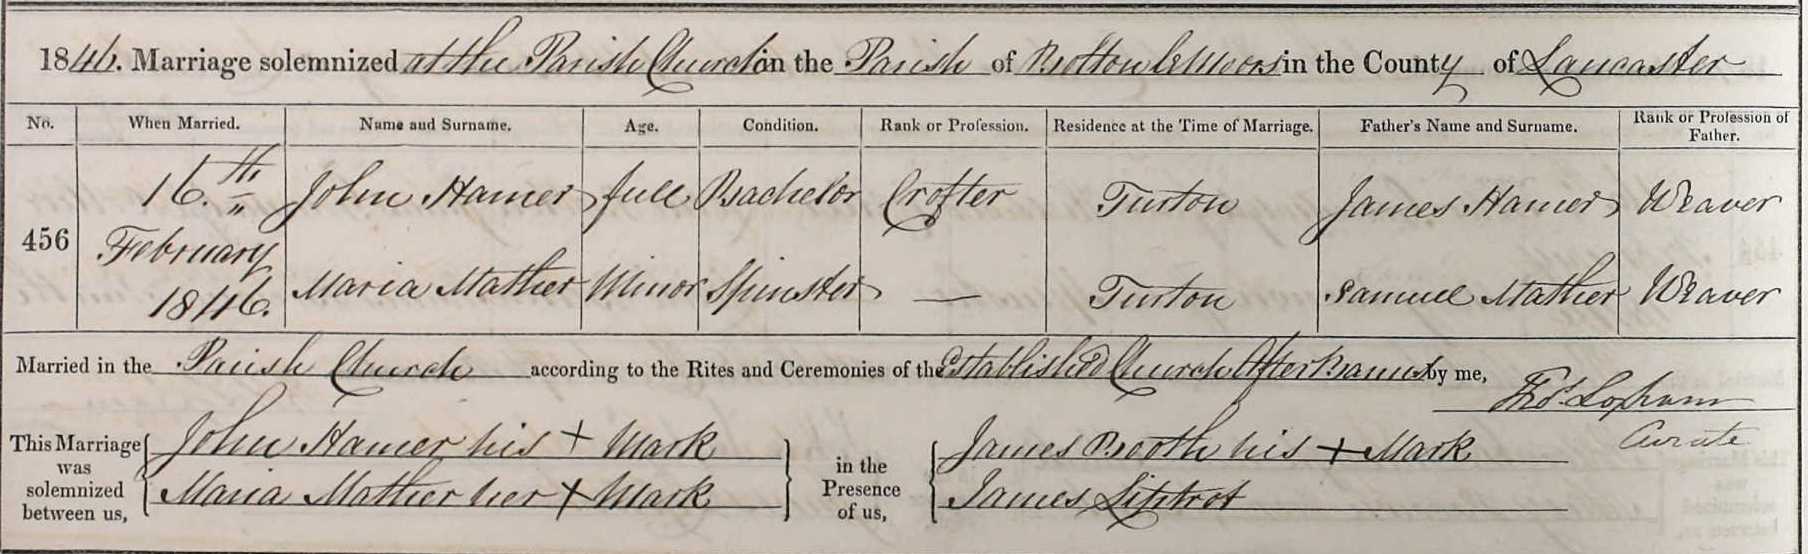 1846. Marriage solemnized at the Parish Church in the Parish of Bolton le Moors in the County of Lancaster
No. When Married. Name and Surname. Age. Condition. Rank or Profession. Residence at the Time of Marriage. Father's Name and Surname. Rank or Profession of Father.
16.th John Hamer full Bachelor Crofter Turton James Hamer Weaver
456 February
1846. Maria Mather Minor Spinster — Turton Samuel Mather Weaver
Married in the Parish Church according to the Rites and Ceremonies of the Established Church After Banns by me,
Thos. Loxham
Curate
This Marriage was solemnized between us, John Hamer his + Mark
Maria Mather her + Mark
in the Presence of us, James Booth his + Mark
James Liptrot